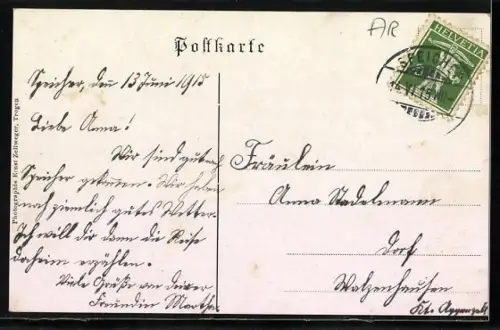 AR
HELVETIA
Postkarte
SPEICHER
Speicher, den 13 Juni 1915
Liebe Anna!
Wir sind gut nach
Speicher gekommen. Wir haben
noch ziemlich gutes Wetter.
Ich will dir dann die Reise
daheim erzählen.
Viele Grüße von deiner
Freundin Martha.
Fräulein
Anna Stadelmann
Dorf
Walzenhausen
Kt. Appenzell
Photographie Ernst Zellweger, Trogen